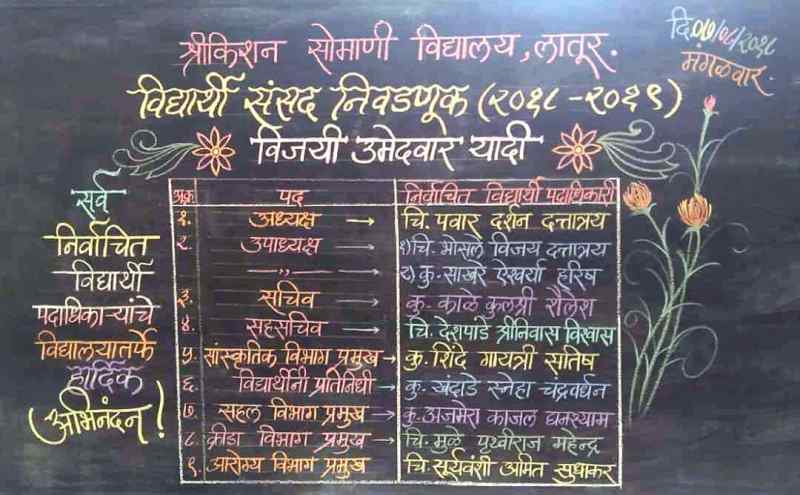 श्रीकिशन सोमाणी विद्यालय, लातूर.
दि.०७/०८/२०१८
मंगळवार.
विद्यार्थी संसद निवडणूक (२०१८ -२०१९)
विजयी उमेदवार यादी
सर्व
निर्वाचित
विद्यार्थी
पदाधिकाऱ्यांचे
विद्यालयातर्फे
हार्दिक
अभिनंदन!
अक्र पद निर्वाचित विद्यार्थी पदाधिकारी
१. अध्यक्ष → चि. पवार दर्शन दत्तात्रय
२. उपाध्यक्ष → १) चि. भोसले विजय दत्तात्रय
—,,— → २) कु. साखरे ऐश्वर्या हरिष
३. सचिव → कु. काळे कुलश्री शैलेश
४. सहसचिव → चि. देशपांडे श्रीनिवास विश्वास
५. सांस्कृतिक विभाग प्रमुख → कु. शिंदे गायत्री सतिष
६. विद्यार्थीनी प्रतिनिधी → कु. खंदाडे स्नेहा चंद्रवर्धन
७. सहल विभाग प्रमुख → कु. अजमेरा काजल घनश्याम
८. क्रीडा विभाग प्रमुख → चि. मुळे पृथ्वीराज महेन्द्र
९. आरोग्य विभाग प्रमुख चि. सूर्यवंशी अमित सुधाकर